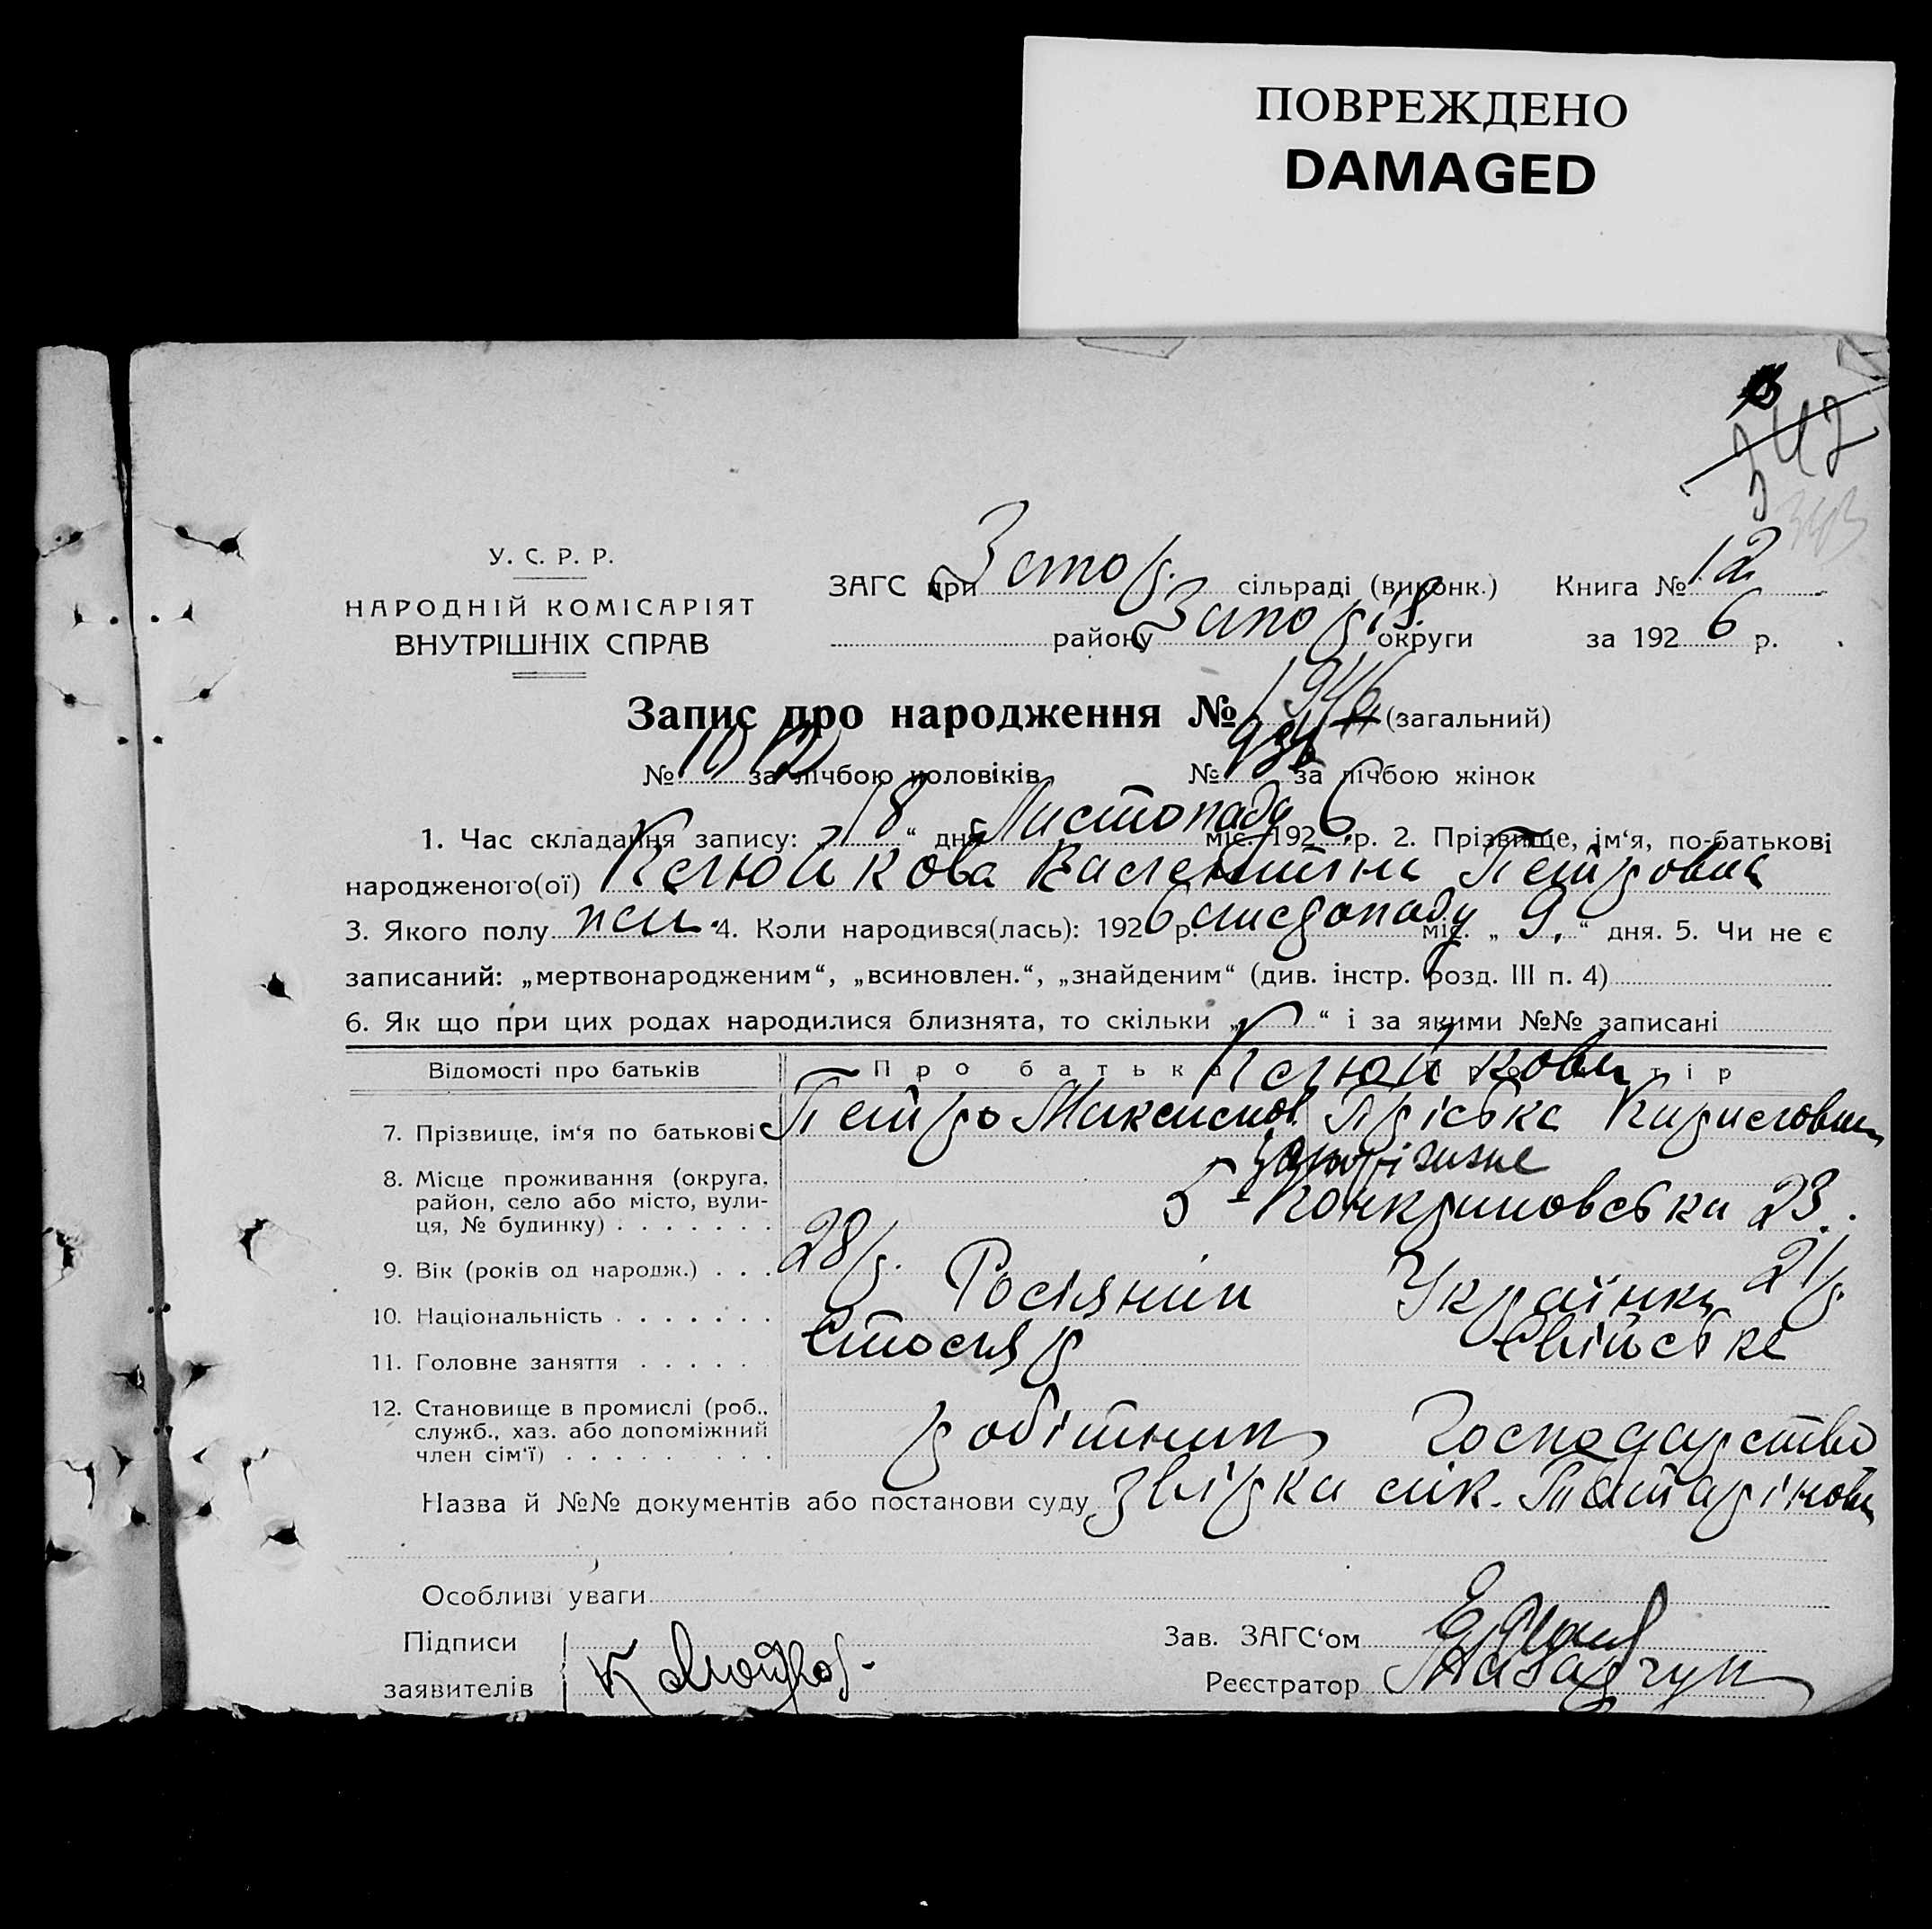 ПОВРЕЖДЕНО
DAMAGED
342
343
У. С. Р. Р.
НАРОДНІЙ КОМІСАРІЯТ
ВНУТРІШНІХ СПРАВ
ЗАГС при сільраді (виконк.) Книга № 12
району округи за 1926 р.
Запис про народження № 1946 (загальний)
№ 1012 за лічбою чоловіків № за лічбою жінок
1. Час складання запису: „18“ дня Листопада міс. 1926 р. 2. Прізвище, ім‘я, по-батькові
народженого(ої) Келюйкова Валентина Петровна
3. Якого полу 4. Коли народився(лась): 1926 р. листопаду міс. „9.“ дня. 5. Чи не є
записаний: „мертвонародженим“, „всиновлен.“, „знайденим“ (див. інстр. розд. III п. 4)
6. Як що при цих родах народилися близнята, то скільки „ “ і за якими №№ записані
Відомості про батьків Про батька тір
Келюйкови
7. Прізвище, ім‘я по батькові Петро Максимов. Пріська Кириловна
8. Місце проживання (округа, район, село або місто, вулиця, № будинку) Запоріжжє
23.
9. Вік (років од народж.) 28 р. 21 р.
10. Національність Росіянін Українка
11. Головне заняття Столяр Свійське
12. Становище в промислі (роб., служб., хаз. або допоміжний член сім‘ї) робітник господарство
Назва й №№ документів або постанови суду звірка лік.
Особливі уваги
Підписи
заявителів
Зав. ЗАГС‘ом
Реєстратор